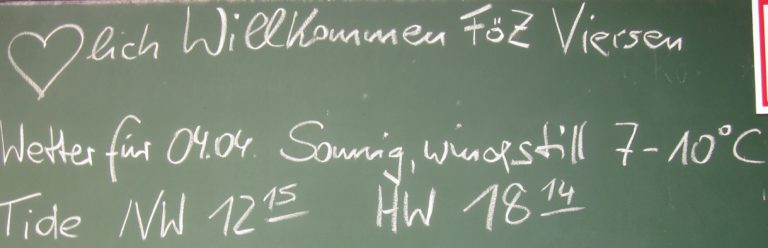 ♡lich Willkommen FöZ Viersen
Wetter für 04.04. Sonnig, windstill 7-10°C
Tide NW 12 15 HW 18 14